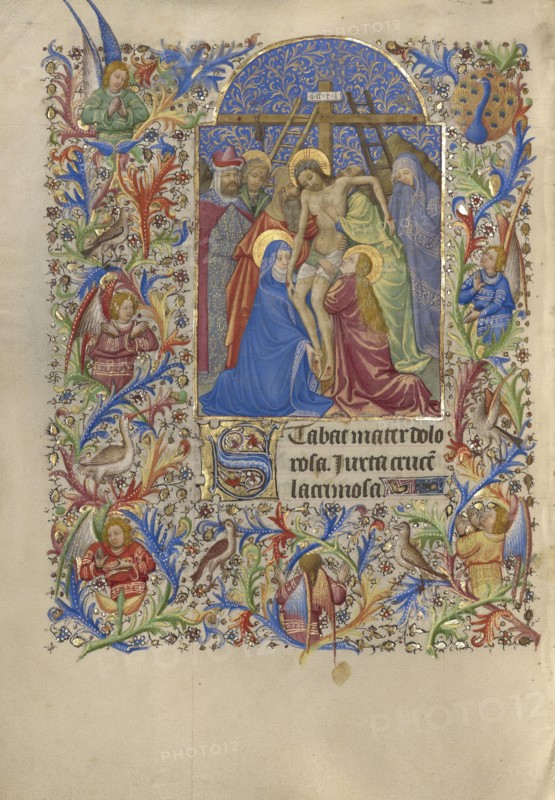 ·I·N·R·I·
Stabat mater dolo
rosa. Juxta crucē
lacrimosa
PHOTO12
PHOTO12
PHOTO12
PHOTO12